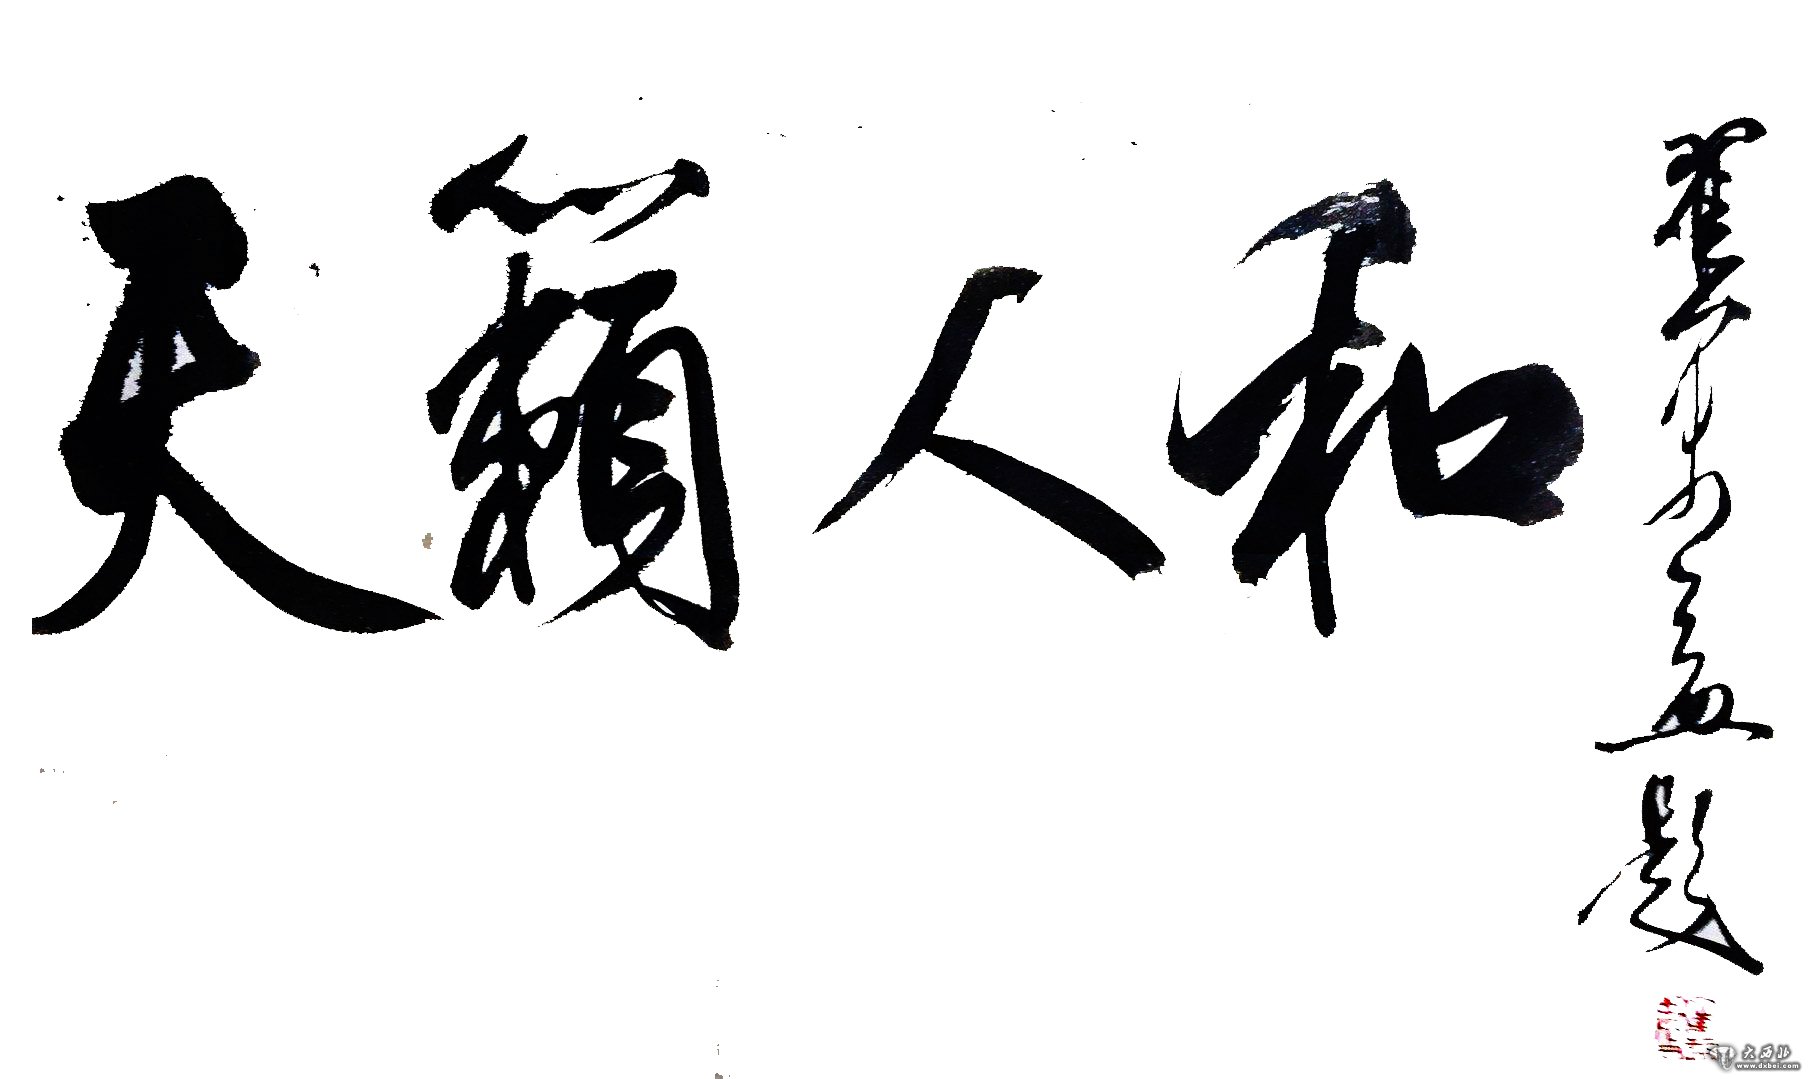 天籟人和
題
大西北
www.dxbei.com